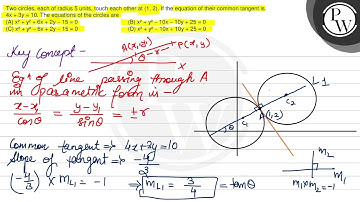 Two circles, each of radius 5 units, touch each other at (1, 2). If the equation of their common tangent is
4x + 3y = 10. The equations of the circles are
(A) x² + y² + 6x + 2y - 15 = 0 (B) x² + y² - 10x + 10y + 25 = 0
(C) x² + y² - 6x + 2y - 15 = 0 (D) x² + y² - 10x - 10y + 25 = 0
Key Concept -
A(x1, y1) r P(x, y)
θ x
Eqⁿ of line passing through A
in parametric form is -
x - x1 / cosθ = y - y1 / sinθ = ± r
Common tangent ⇒ 4x + 3y = 10
Slope of tangent ⇒ -4/3
(-4/3) × mL1 = -1 ⇒ mL1 = 3/4 = tanθ
L1
C2
A(1, 2)
θ C1
m2
m1
m1 × m2 = -1